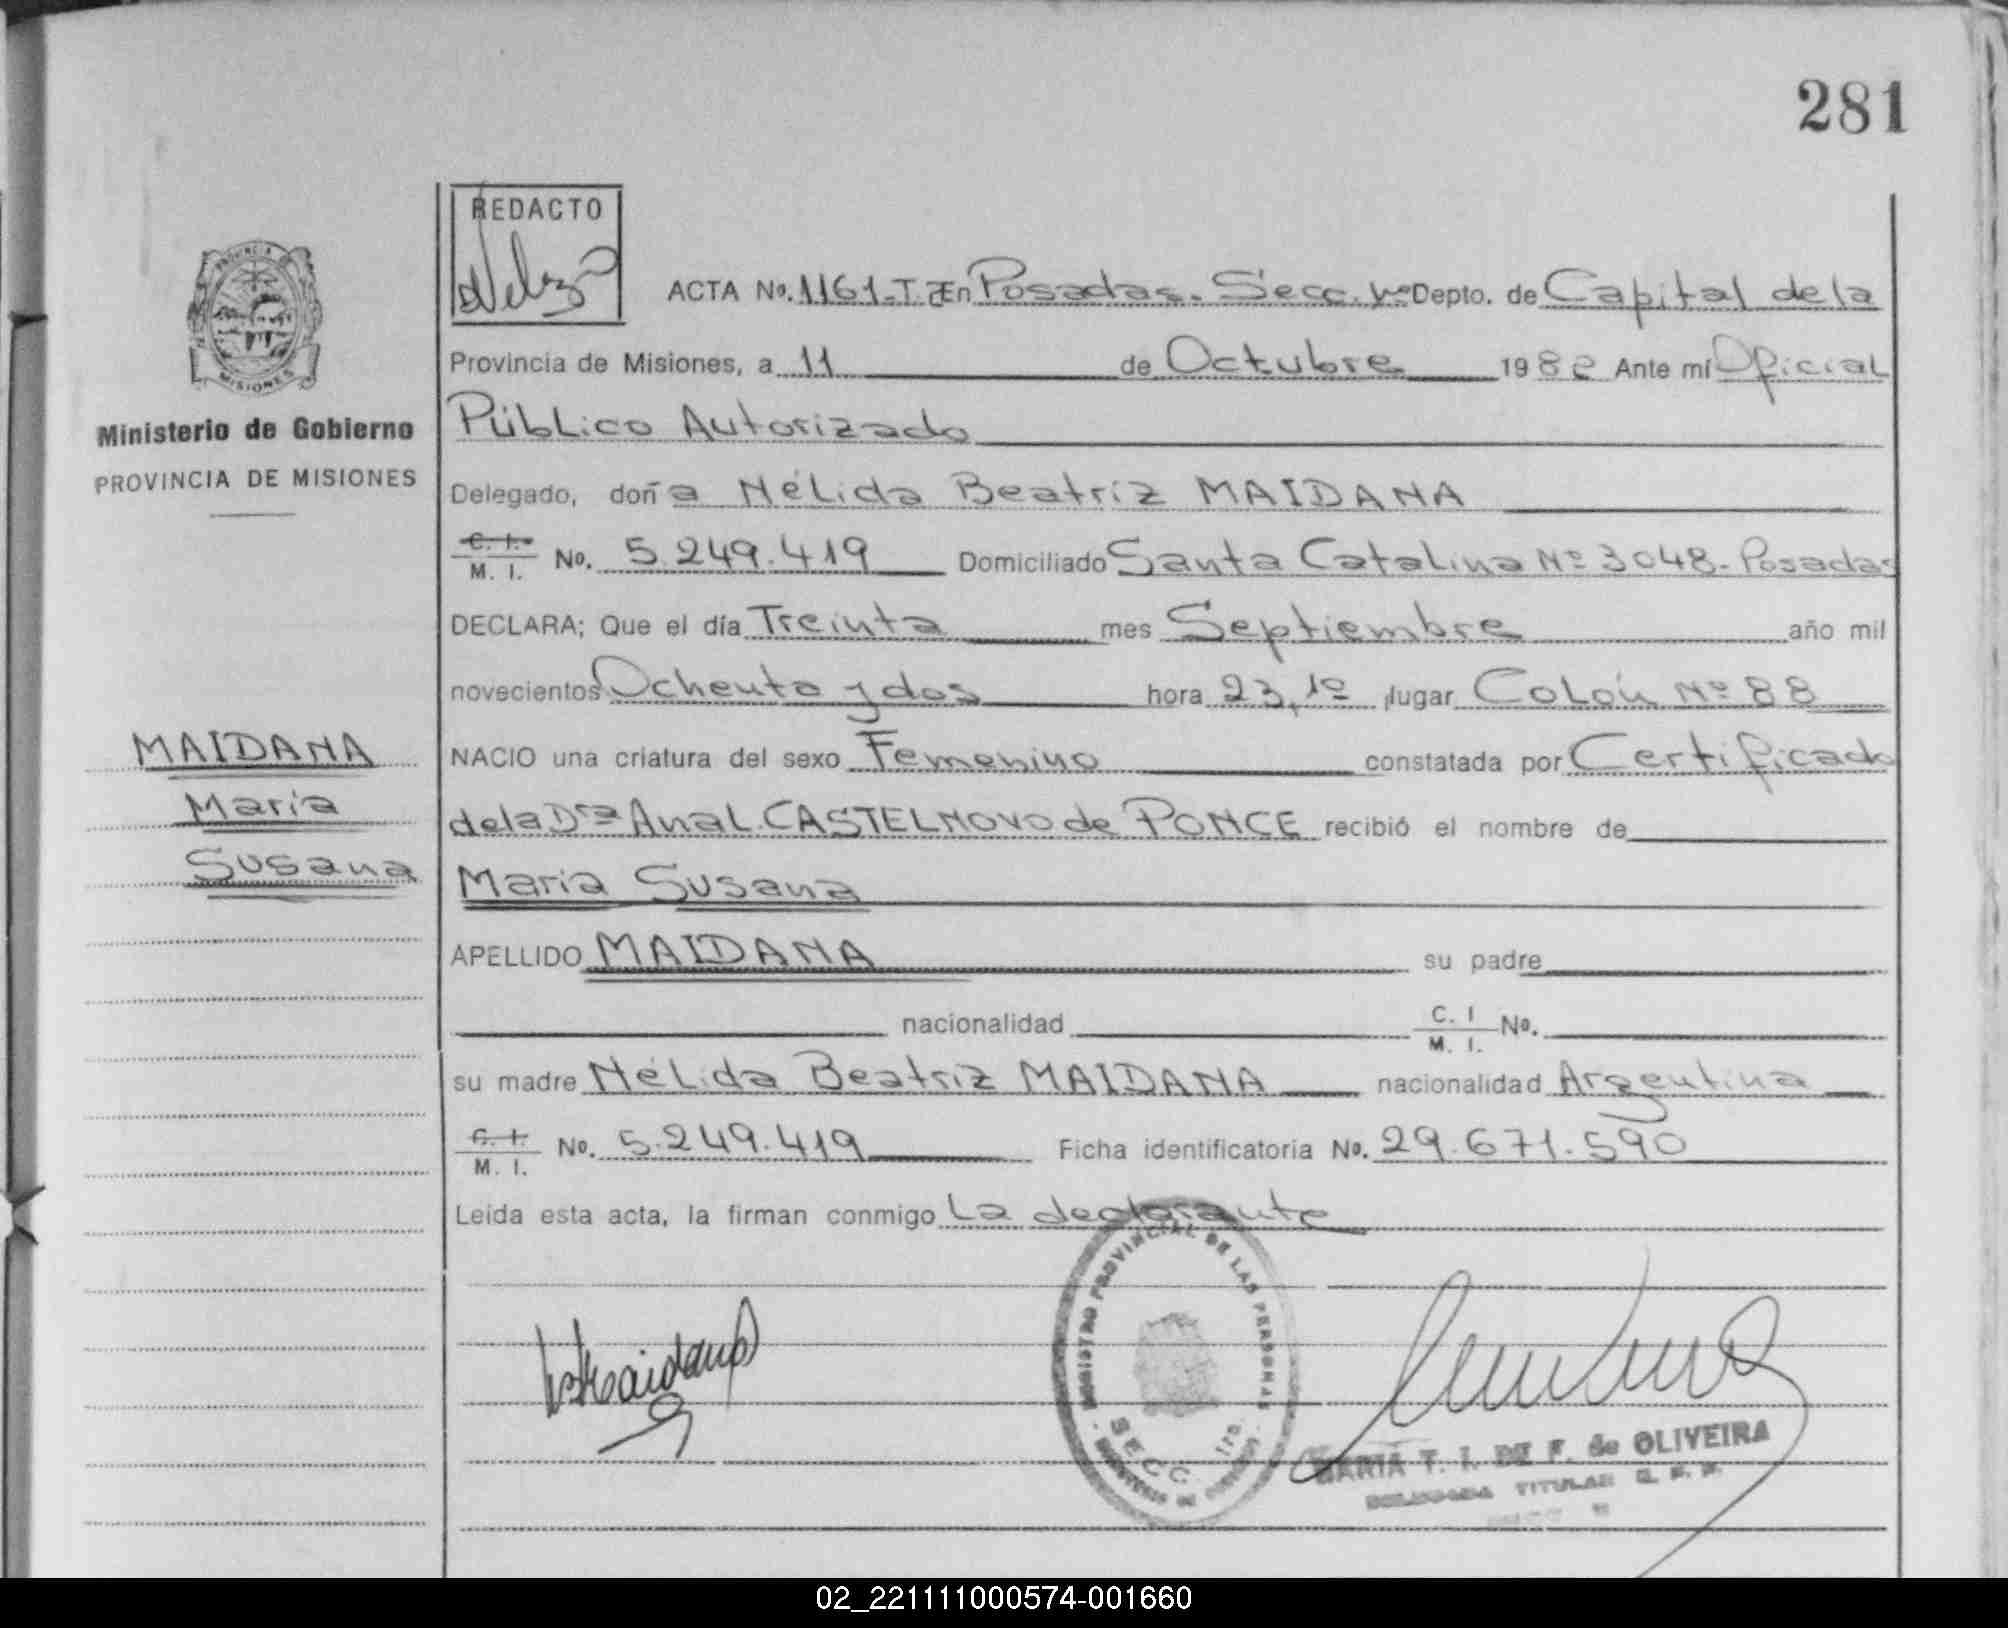 281
REDACTO
ACTA No. 1161. T. En Posadas. Secc. 1ª Depto. de Capital de la
Provincia de Misiones, a 11 de Octubre 1982 Ante mí Oficial
Ministerio de Gobierno
Público Autorizado
PROVINCIA DE MISIONES
Delegado, doña Nélida Beatríz MAIDANA
C. I. M. I. No. 5.249.419 Domiciliado Santa Catalina Nº 3048. Posadas
DECLARA; Que el día Treinta mes Septiembre año mil
novecientos Ochenta y dos hora 23,1º lugar Colón Nº 88
MAIDANA
NACIO una criatura del sexo Femenino constatada por Certificado
María
de la Drª Ana L. CASTELNOVO de PONCE recibió el nombre de
Susana
María Susana
APELLIDO MAIDANA su padre
nacionalidad C. I M. I. No.
su madre Nélida Beatríz MAIDANA nacionalidad Argentina
C. I. M. I. No. 5.249.419 Ficha identificatoria No. 29.671.590
Leída esta acta, la firman conmigo La declarante
REGISTRO PROVINCIAL DE LAS PERSONAS
SECC. 1ra.
MARIA T. I. DE F. de OLIVEIRA
TITULAR
02_221111000574-001660